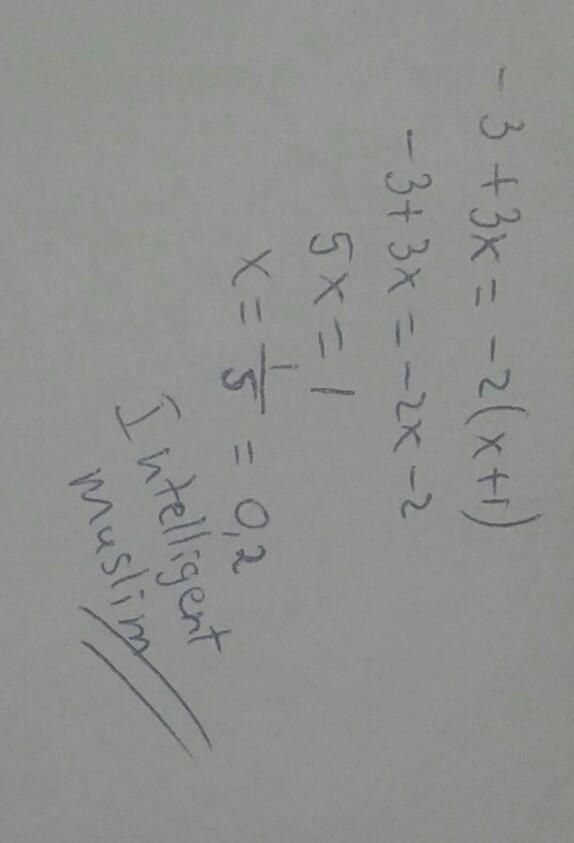 -3 + 3x = -2(x+1)
-3 + 3x = -2x - 2
5x = 1
x = 1/5 = 0,2
Intelligent
Muslim